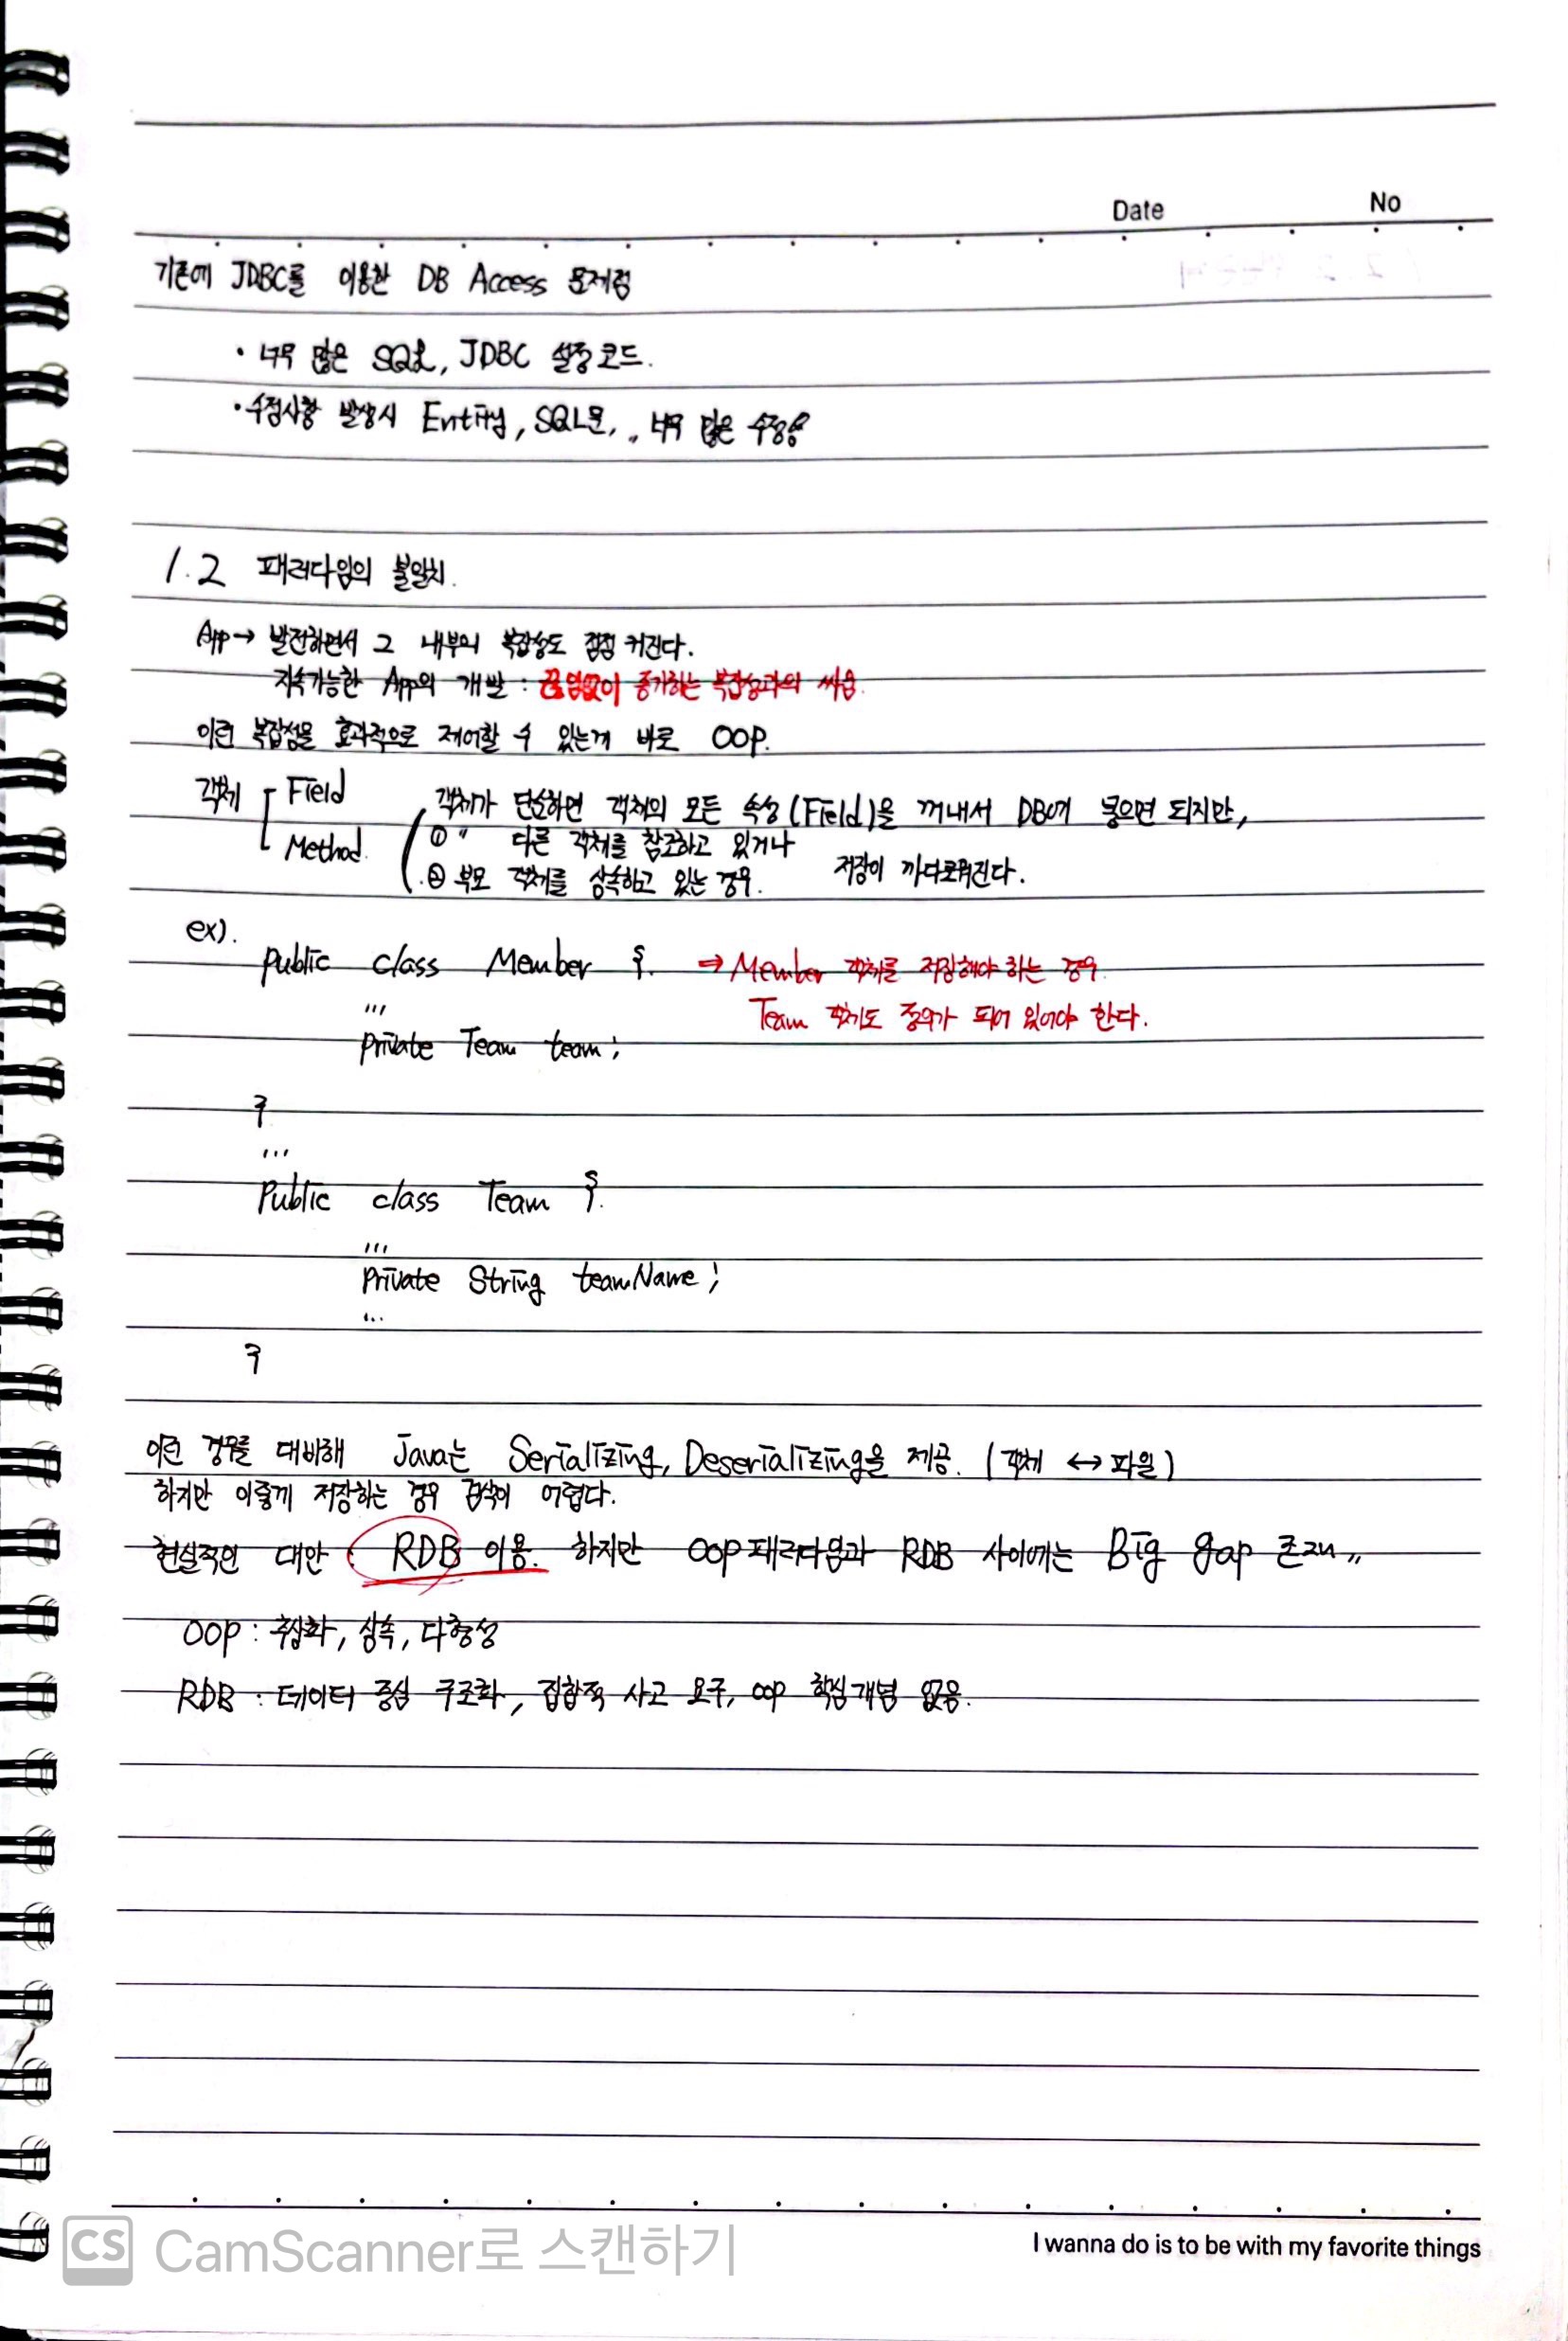 Date No
기존에 JDBC를 이용한 DB Access 문제점
· 너무 많은 SQL, JDBC 설정 코드.
· 수정사항 발생시 Entity, SQL문, 〃 너무 많은 수정량
1.2 패러다임의 불일치.
App → 발전하면서 그 내부의 복잡성도 점점 커진다.
지속가능한 App의 개발 : 끊임없이 증가하는 복잡성과의 싸움.
이런 복잡성을 효과적으로 제어할 수 있는게 바로 OOP.
객체 Field
Method.
객체가 단순하면 객체의 모든 속성(Field)을 꺼내서 DB에 넣으면 되지만,
① 〃 다른 객체를 참조하고 있거나
② 부모 객체를 상속하고 있는 경우. 저장이 까다로워진다.
ex).
public class Member {. → Member 객체를 저장해야 하는 경우.
... Team 객체도 정의가 되어 있어야 한다.
private Team team;
}
...
Public class Team {.
...
private String teamName;
...
}
이런 경우를 대비해 Java는 Serializing, Deserializing을 제공. (객체 ↔ 파일)
하지만 이렇게 저장하는 경우 검색이 어렵다.
현실적인 대안 : RDB 이용. 하지만 OOP 패러다임과 RDB 사이에는 Big gap 존재〃
OOP : 추상화, 상속, 다형성
RDB : 데이터 중심 구조화, 집합적 사고 요구, OOP 핵심개념 없음.
I wanna do is to be with my favorite things
CS CamScanner로 스캔하기